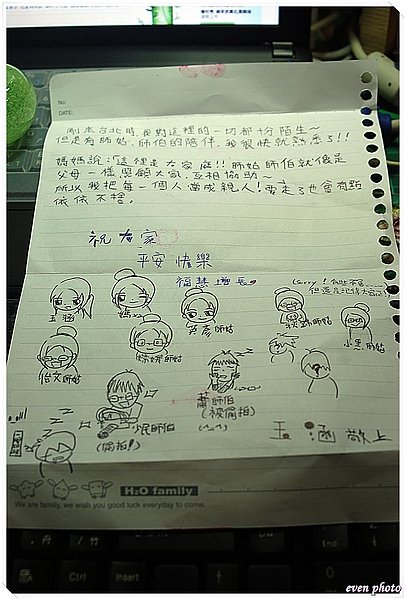 No:
DATE:
剛來台北時,我對這裡的一切都十分陌生~
但是有師姑、師伯的陪伴,我很快就熟悉了!!
媽媽說:這裡是大家庭!!師姑師伯就像是
父母一樣照顧大家、互相協助~
所以我把每一個人當成親人!要走了也會有點
依依不捨。
祝大家
平安快樂
福慧增長。
玉涵
媽
師姑
師姑
小黑師姑
怡文師姑
師姑
小民師伯
(偷拍!)
蕭師伯
(被偷拍)
玉涵 敬上
H2O family
We are family, we wish you good luck everyday to come.
End
Ctrl
Insert
even photo